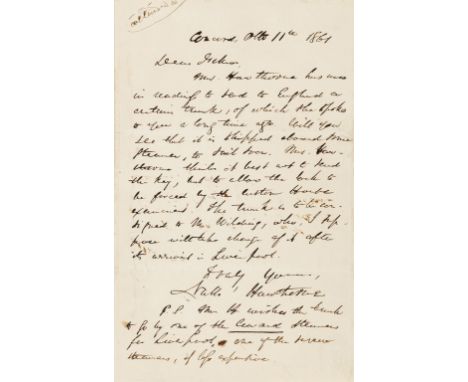 Concord, Oct 11th 1861
Dear Ticknor,
Mrs. Hawthorne has now
in readiness to send to England a
certain trunk, of which she spoke
to you a long time ago. Will you
see that it is shipped aboard some
steamer, to sail soon. Mrs. Haw-
thorne thinks it best not to send
the key, but to allow the lock to
be forced by the Custom House
The trunk is to be con-
signed to Mr. Wilding, who, I sup-
pose will take charge of it after
its arrival in Liverpool.
Truly Yours,
Nath Hawthorne
P.S. Mrs H wishes the trunk
to go by one of the Cunard Steamers
for Liverpool, one of the screw
steamers, if less expensive.